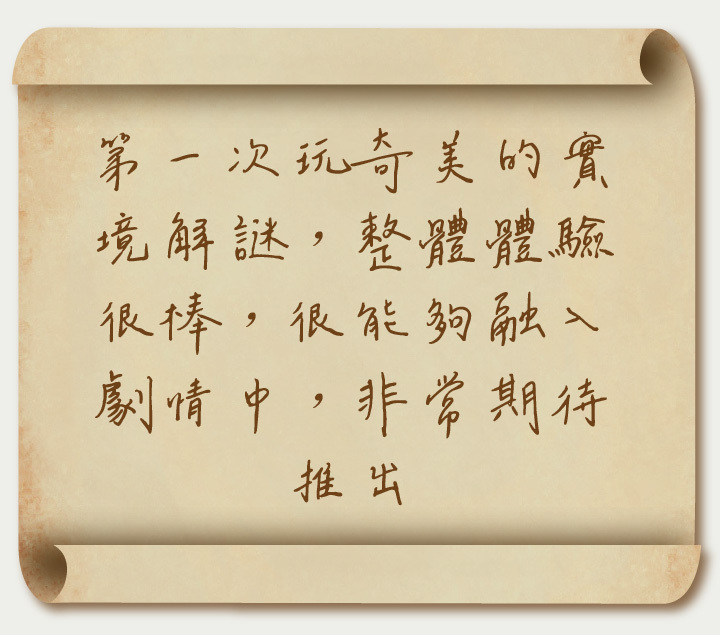 第一次玩奇美的實
境解謎，整體體驗
很棒，很能夠融入
劇情中，非常期待
推出